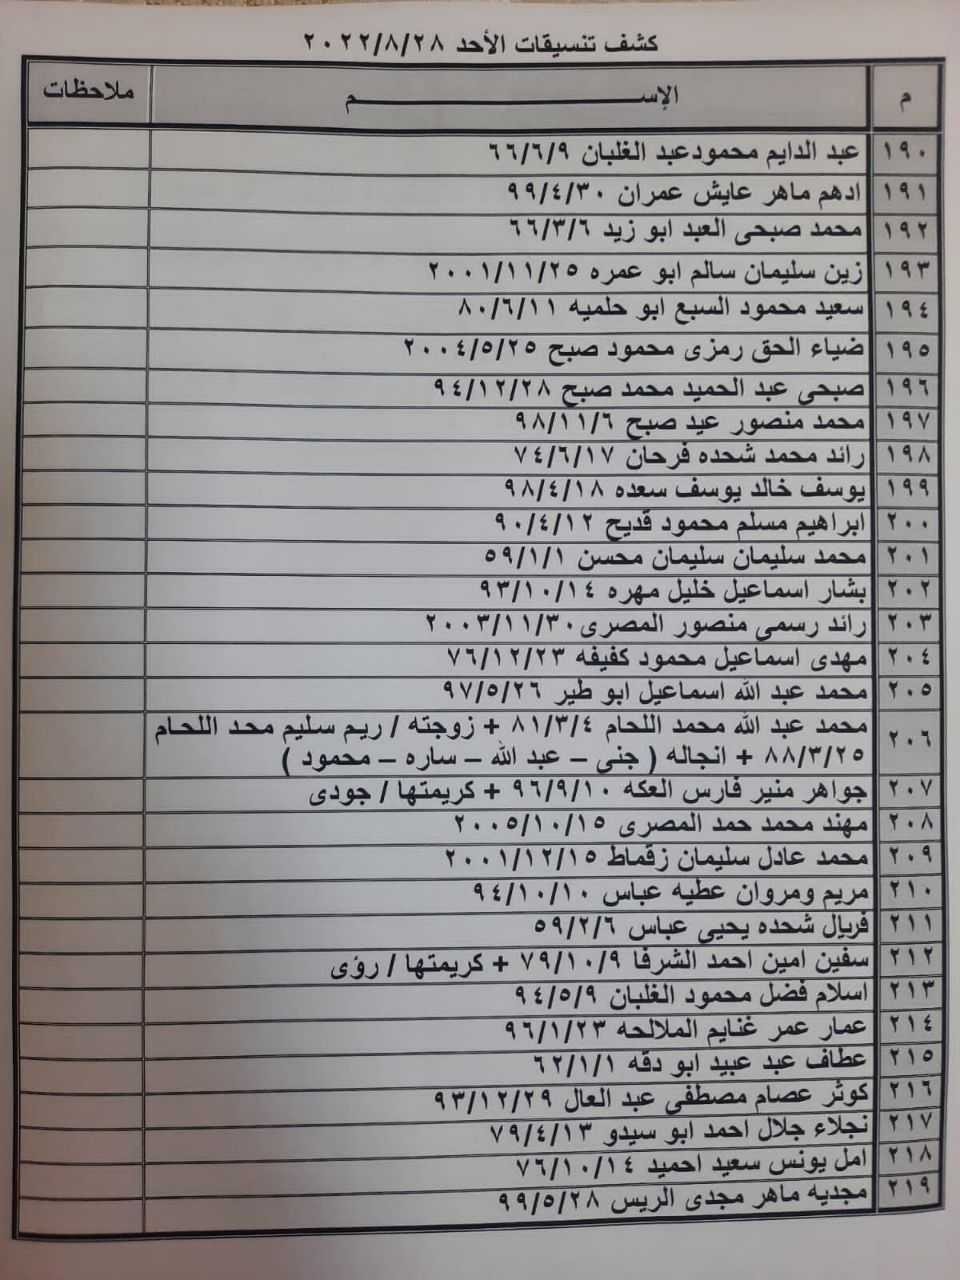 كشف تنسيقات الأحد ٢٠٢٢/٨/٢٨
م الإســـــــــم ملاحظات
١٩٠ عبد الدايم محمودعبد الغلبان ٦٦/٦/٩
١٩١ ادهم ماهر عايش عمران ٩٩/٤/٣٠
١٩٢ محمد صبحى العبد ابو زيد ٦٦/٣/٦
١٩٣ زين سليمان سالم ابو عمره ٢٠٠١/١١/٢٥
١٩٤ سعيد محمود السبع ابو حلميه ٨٠/٦/١١
١٩٥ ضياء الحق رمزى محمود صبح ٢٠٠٤/٥/٢٥
١٩٦ صبحى عبد الحميد محمد صبح ٩٤/١٢/٢٨
١٩٧ محمد منصور عيد صبح ٩٨/١١/٦
١٩٨ رائد محمد شحده فرحان ٧٤/٦/١٧
١٩٩ يوسف خالد يوسف سعده ٩٨/٤/١٨
٢٠٠ ابراهيم مسلم محمود قديح ٩٠/٤/١٢
٢٠١ محمد سليمان سليمان محسن ٥٩/١/١
٢٠٢ بشار اسماعيل خليل مهره ٩٣/١٠/١٤
٢٠٣ رائد رسمى منصور المصرى ٢٠٠٣/١١/٣٠
٢٠٤ مهدى اسماعيل محمود كفيفه ٧٦/١٢/٢٣
٢٠٥ محمد عبد الله اسماعيل ابو طير ٩٧/٥/٢٦
٢٠٦ محمد عبد الله محمد اللحام ٨١/٣/٤ + زوجته / ريم سليم محد اللحام
٨٨/٣/٢٥ + انجاله ( جنى – عبد الله – ساره – محمود )
٢٠٧ جواهر منير فارس العكه ٩٦/٩/١٠ + كريمتها / جودى
٢٠٨ مهند محمد حمد المصرى ٢٠٠٥/١٠/١٥
٢٠٩ محمد عادل سليمان زقماط ٢٠٠١/١٢/١٥
٢١٠ مريم ومروان عطيه عباس ٩٤/١٠/١٠
٢١١ فريال شحده يحيى عباس ٥٩/٢/٦
٢١٢ سفين امين احمد الشرفا ٧٩/١٠/٩ + كريمتها / رؤى
٢١٣ اسلام فضل محمود الغلبان ٩٤/٥/٩
٢١٤ عمار عمر غنايم الملالحه ٩٦/١/٢٣
٢١٥ عطاف عبد عبيد ابو دقه ٦٢/١/١
٢١٦ كوثر عصام مصطفى عبد العال ٩٣/١٢/٢٩
٢١٧ نجلاء جلال احمد ابو سيدو ٧٩/٤/١٣
٢١٨ امل يونس سعيد احميد ٧٦/١٠/١٤
٢١٩ مجديه ماهر مجدى الريس ٩٩/٥/٢٨